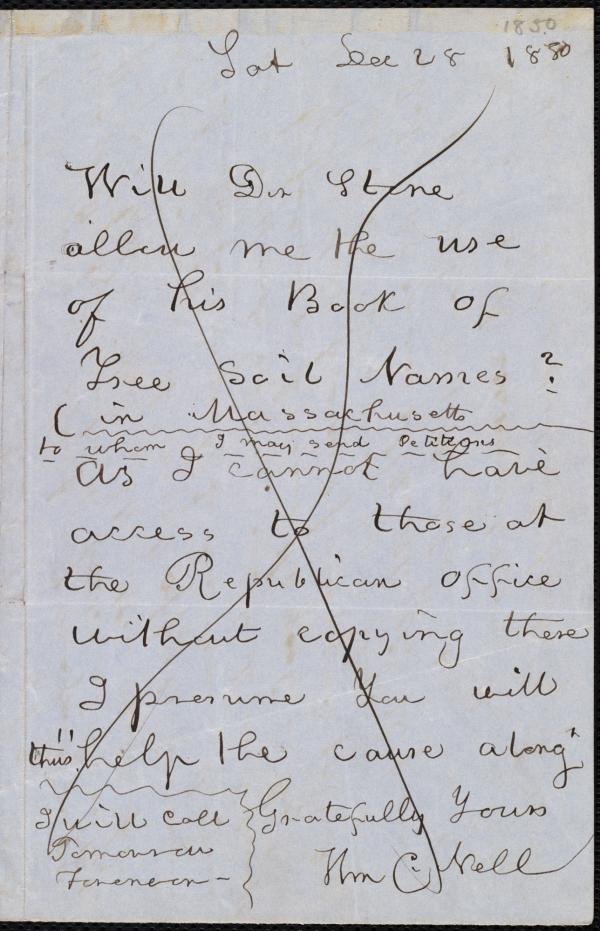 1850
Sat Dec 28 1850
Will Dr Stone
allow me the use
of his Book of
Free Soil Names ?
( in Massachusetts
to whom I may send Petitions
as I cannot have
access to those at
the Republican office
without copying there
I presume You will
thus "help the cause along"
I will call
Tomorrow
Forenoon -
Gratefully Yours
Wm C. Nell